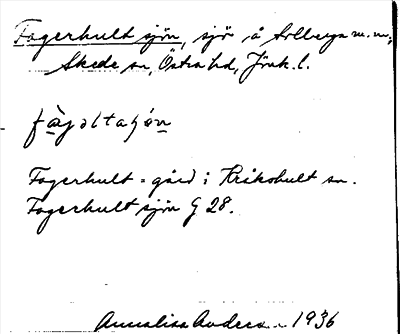 Fagerhult sjön, sjö å Solberga m.m,
Skede sn, Östra hd, Jönk. l.
Fagerhult = gård i Kråkshult sn.
Fagerhult sjön G 28.
Annalisa Anders 1936